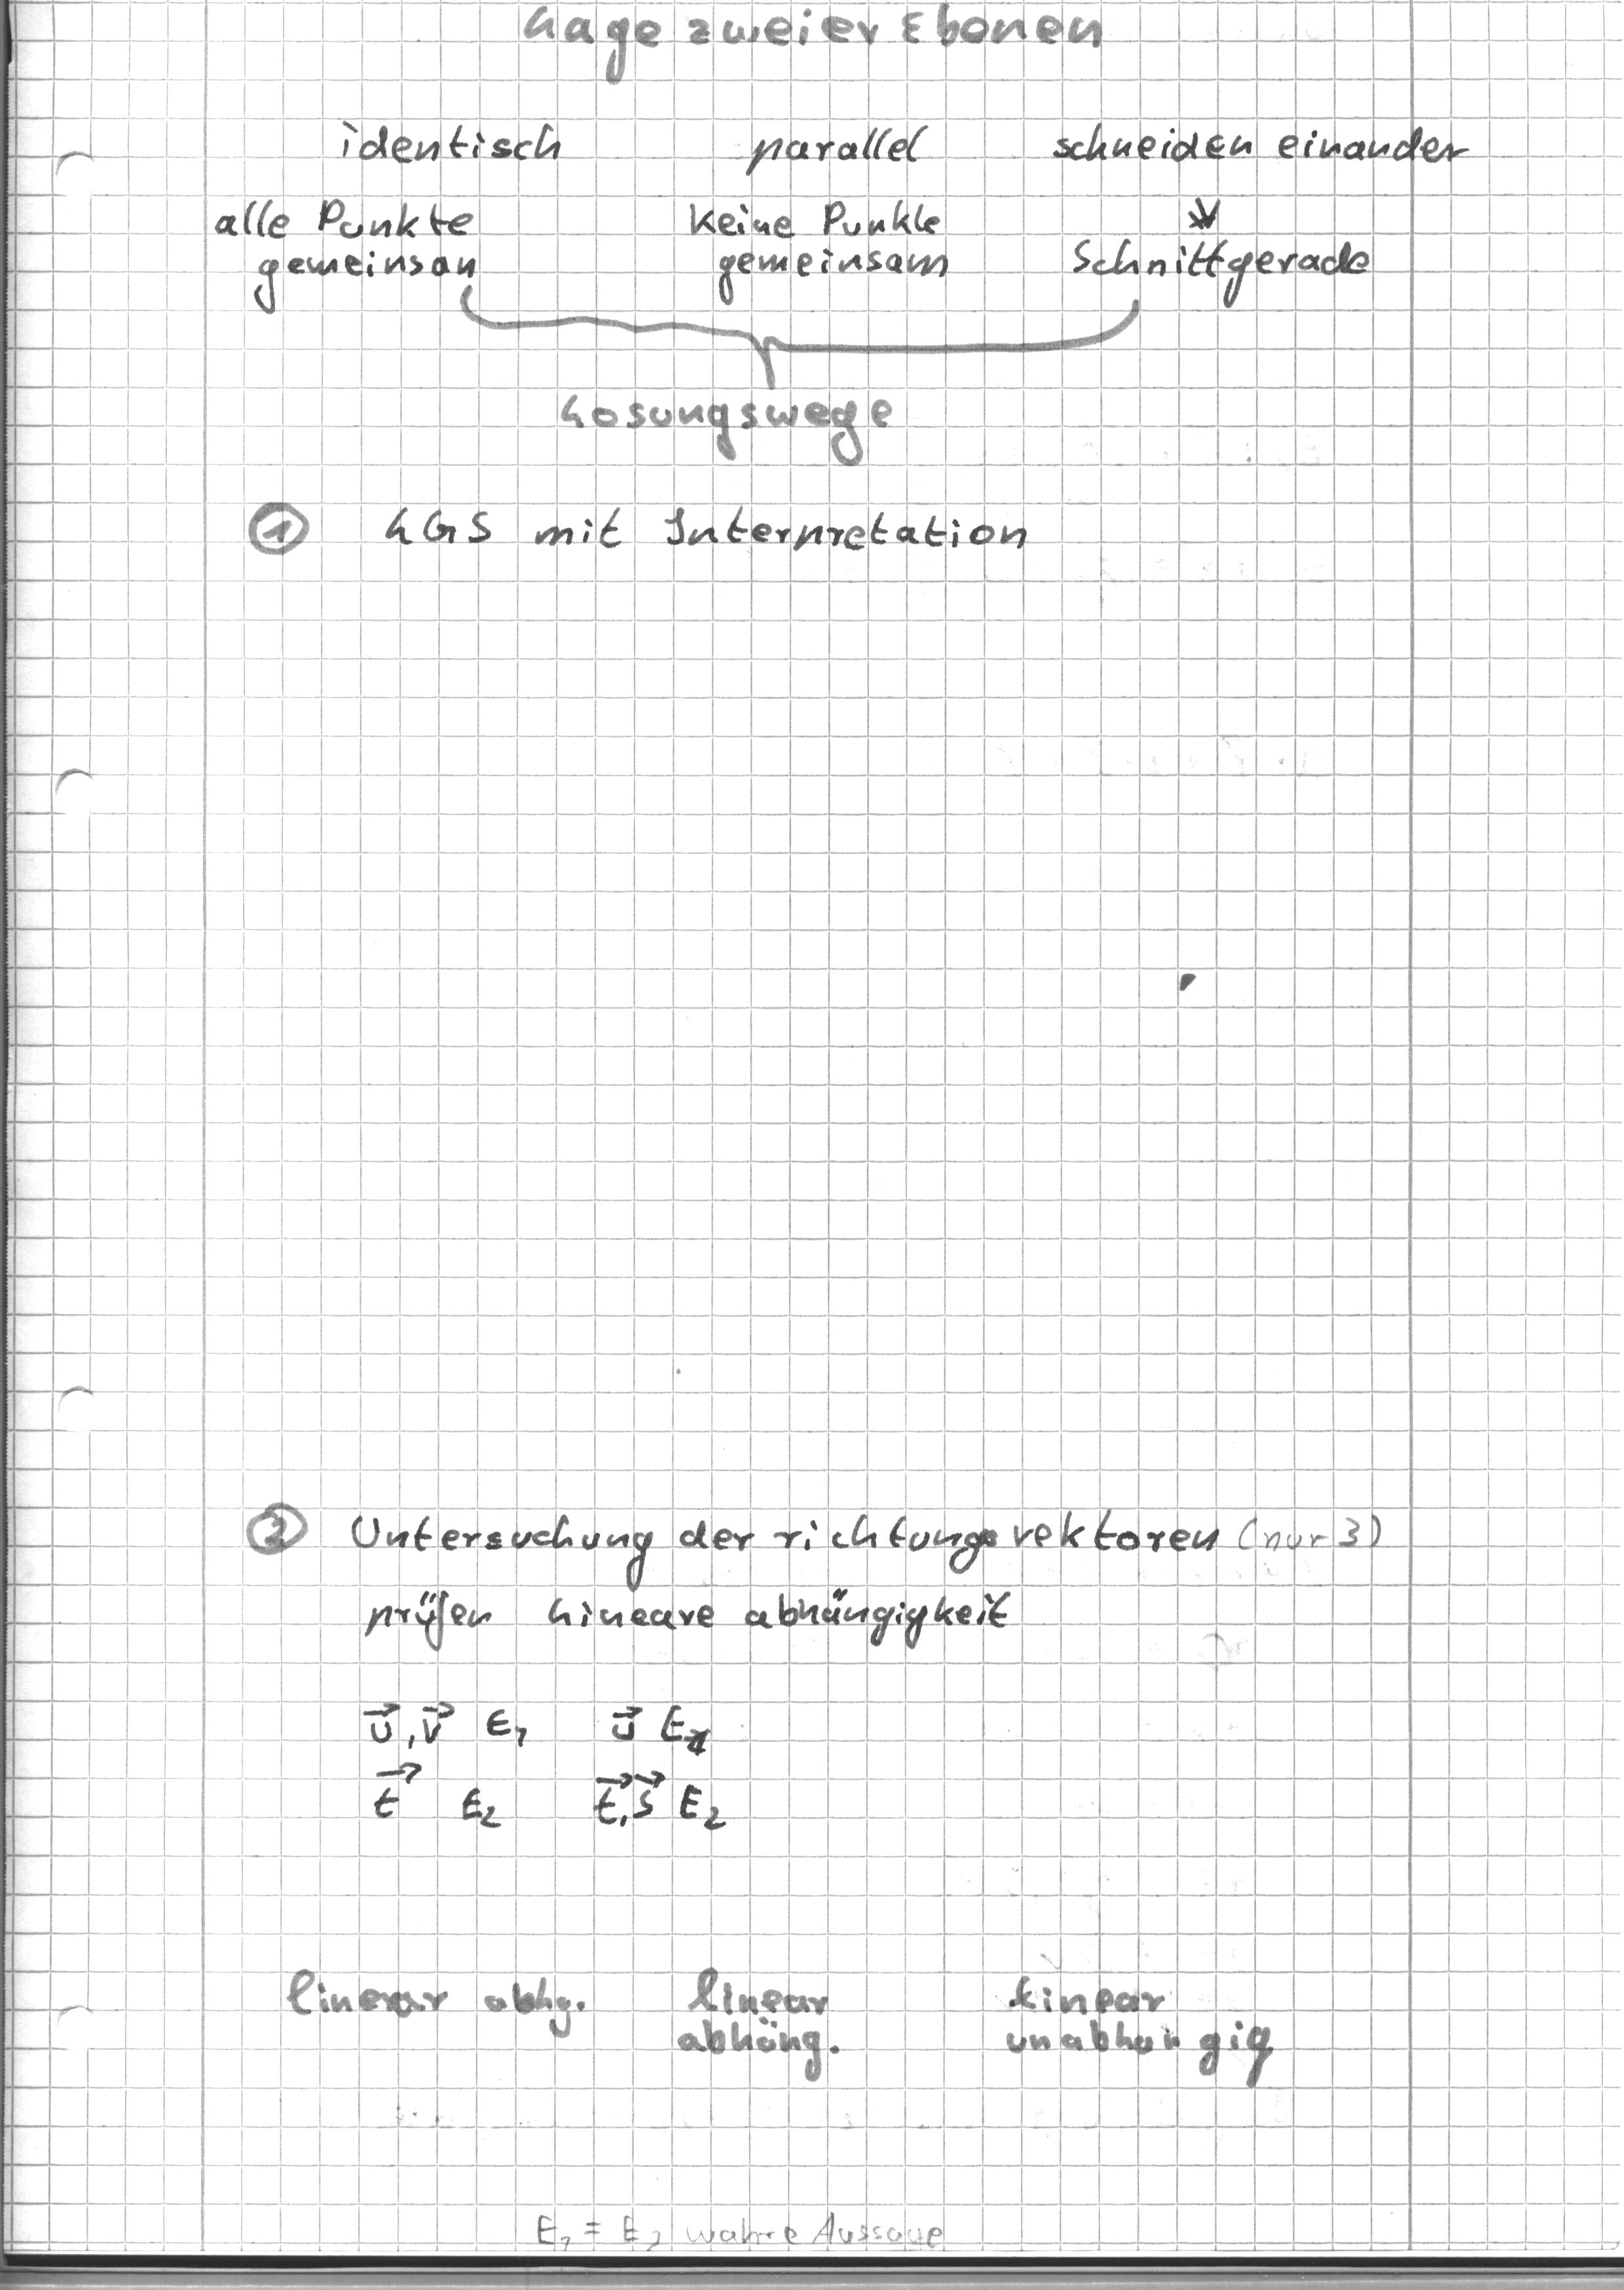 Lage zweier Ebenen
identisch parallel schneiden einander
alle Punkte gemeinsam
keine Punkte gemeinsam
Schnittgerade
Lösungswege
① LGS mit Interpretation
② Untersuchung der richtungsvektoren (nur 3)
prüfen Lineare abhängigkeit
u⃗, v⃗ E₁ u⃗ E₁
t⃗ E₂ t⃗, s⃗ E₂
linear abhg. linear abhäng. Linear unabhängig
E₁ = E₂ wahre Aussage